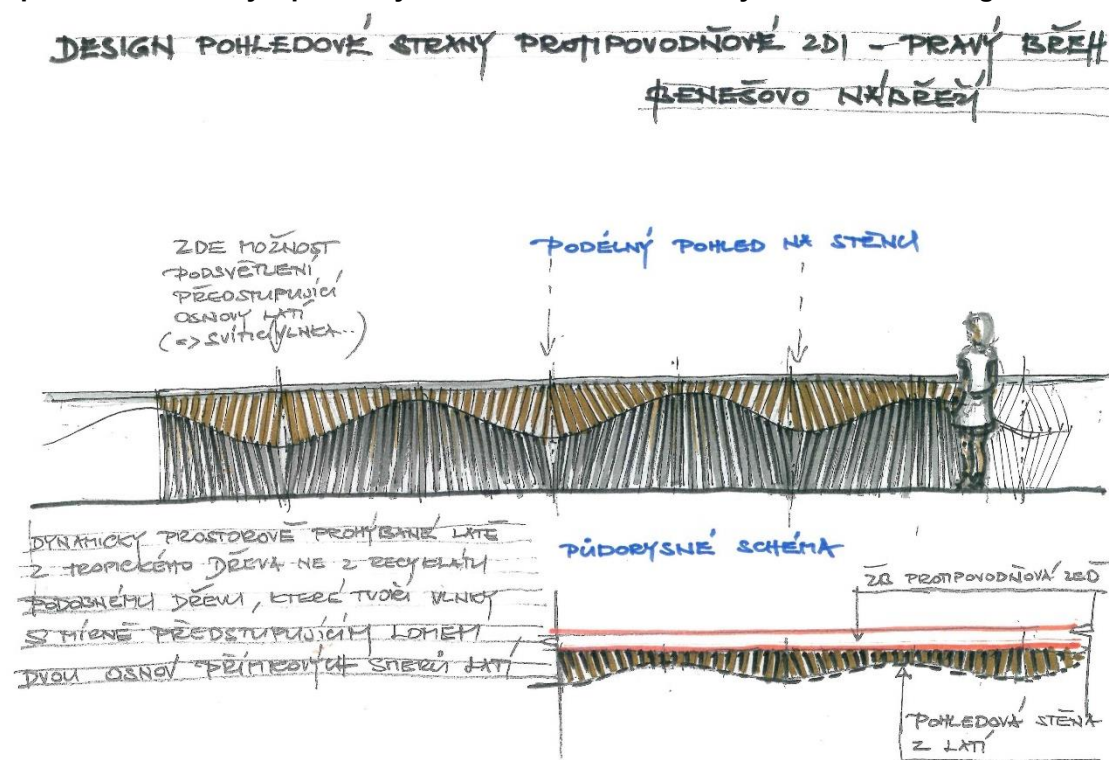 DESIGN POHLEDOVÉ STRANY PROTIPOVODŇOVÉ ZDI - PRAVÝ BŘEH
BENEŠOVO NÁBŘEŽÍ
ZDE MOŽNOST
PODSVĚTLENÍ
PŘEDSTUPUJÍCÍ
OSNOVY LATÍ
(=> SVÍTÍCÍ VLNKA...)
PODÉLNÝ POHLED NA STĚNU
DYNAMICKY PROSTOROVĚ PROHÝBANÉ LATĚ
Z TROPICKÉHO DŘEVA NE Z RECYKLÁTU
PODOBNÉMU DŘEVU, KTERÉ TVOŘÍ VLNKY
S MÍRNĚ PŘEDSTUPUJÍCÍM LOMEM
DVOU OSNOV PŘÍMKOVÝCH SMĚRŮ LATÍ
PŮDORYSNÉ SCHÉMA
ŽB PROTIPOVODŇOVÁ ZEĎ
POHLEDOVÁ STĚNA
Z LATÍ